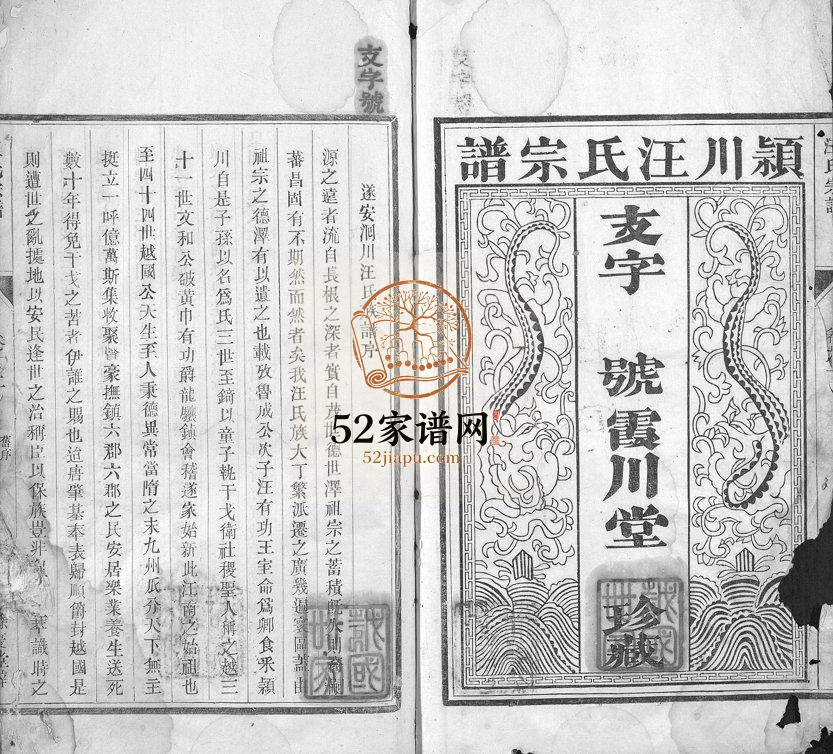 潁川汪氏宗譜
支字
號霞川堂
珍藏
支字號
遂安洞川汪氏族譜序
源之遠者流自長根之深者實自茂世德世澤祖宗之蓄積既久則
蕃昌固有不期然而然者矣我汪氏族大丁繁派遷之廣幾遍寰區蓋由
祖宗之德澤有以遺之也載攷魯成公次子汪有功王室命爲卿食釆潁
川自是子孫以名爲氏三世至錡以童子執干戈衛社稷聖人稱之越三
十一世文和公破黄巾有功爵龍驤鎮會稽遂家始新此江南之始祖也
至四十四世越國公天生至人秉德異常當隋之末九州瓜分天下無主
挺立一呼億萬斯集收聚賢豪撫鎮六郡六郡之民安居樂業養生送死
數十年得免干戈之苦者伊誰之賜也迨唐肇基奉表歸順簡封越國是
則遭世之亂據地以安民逢世之治稱臣以保族豈非 識時之
舊序
52家谱网
52jiapu.com